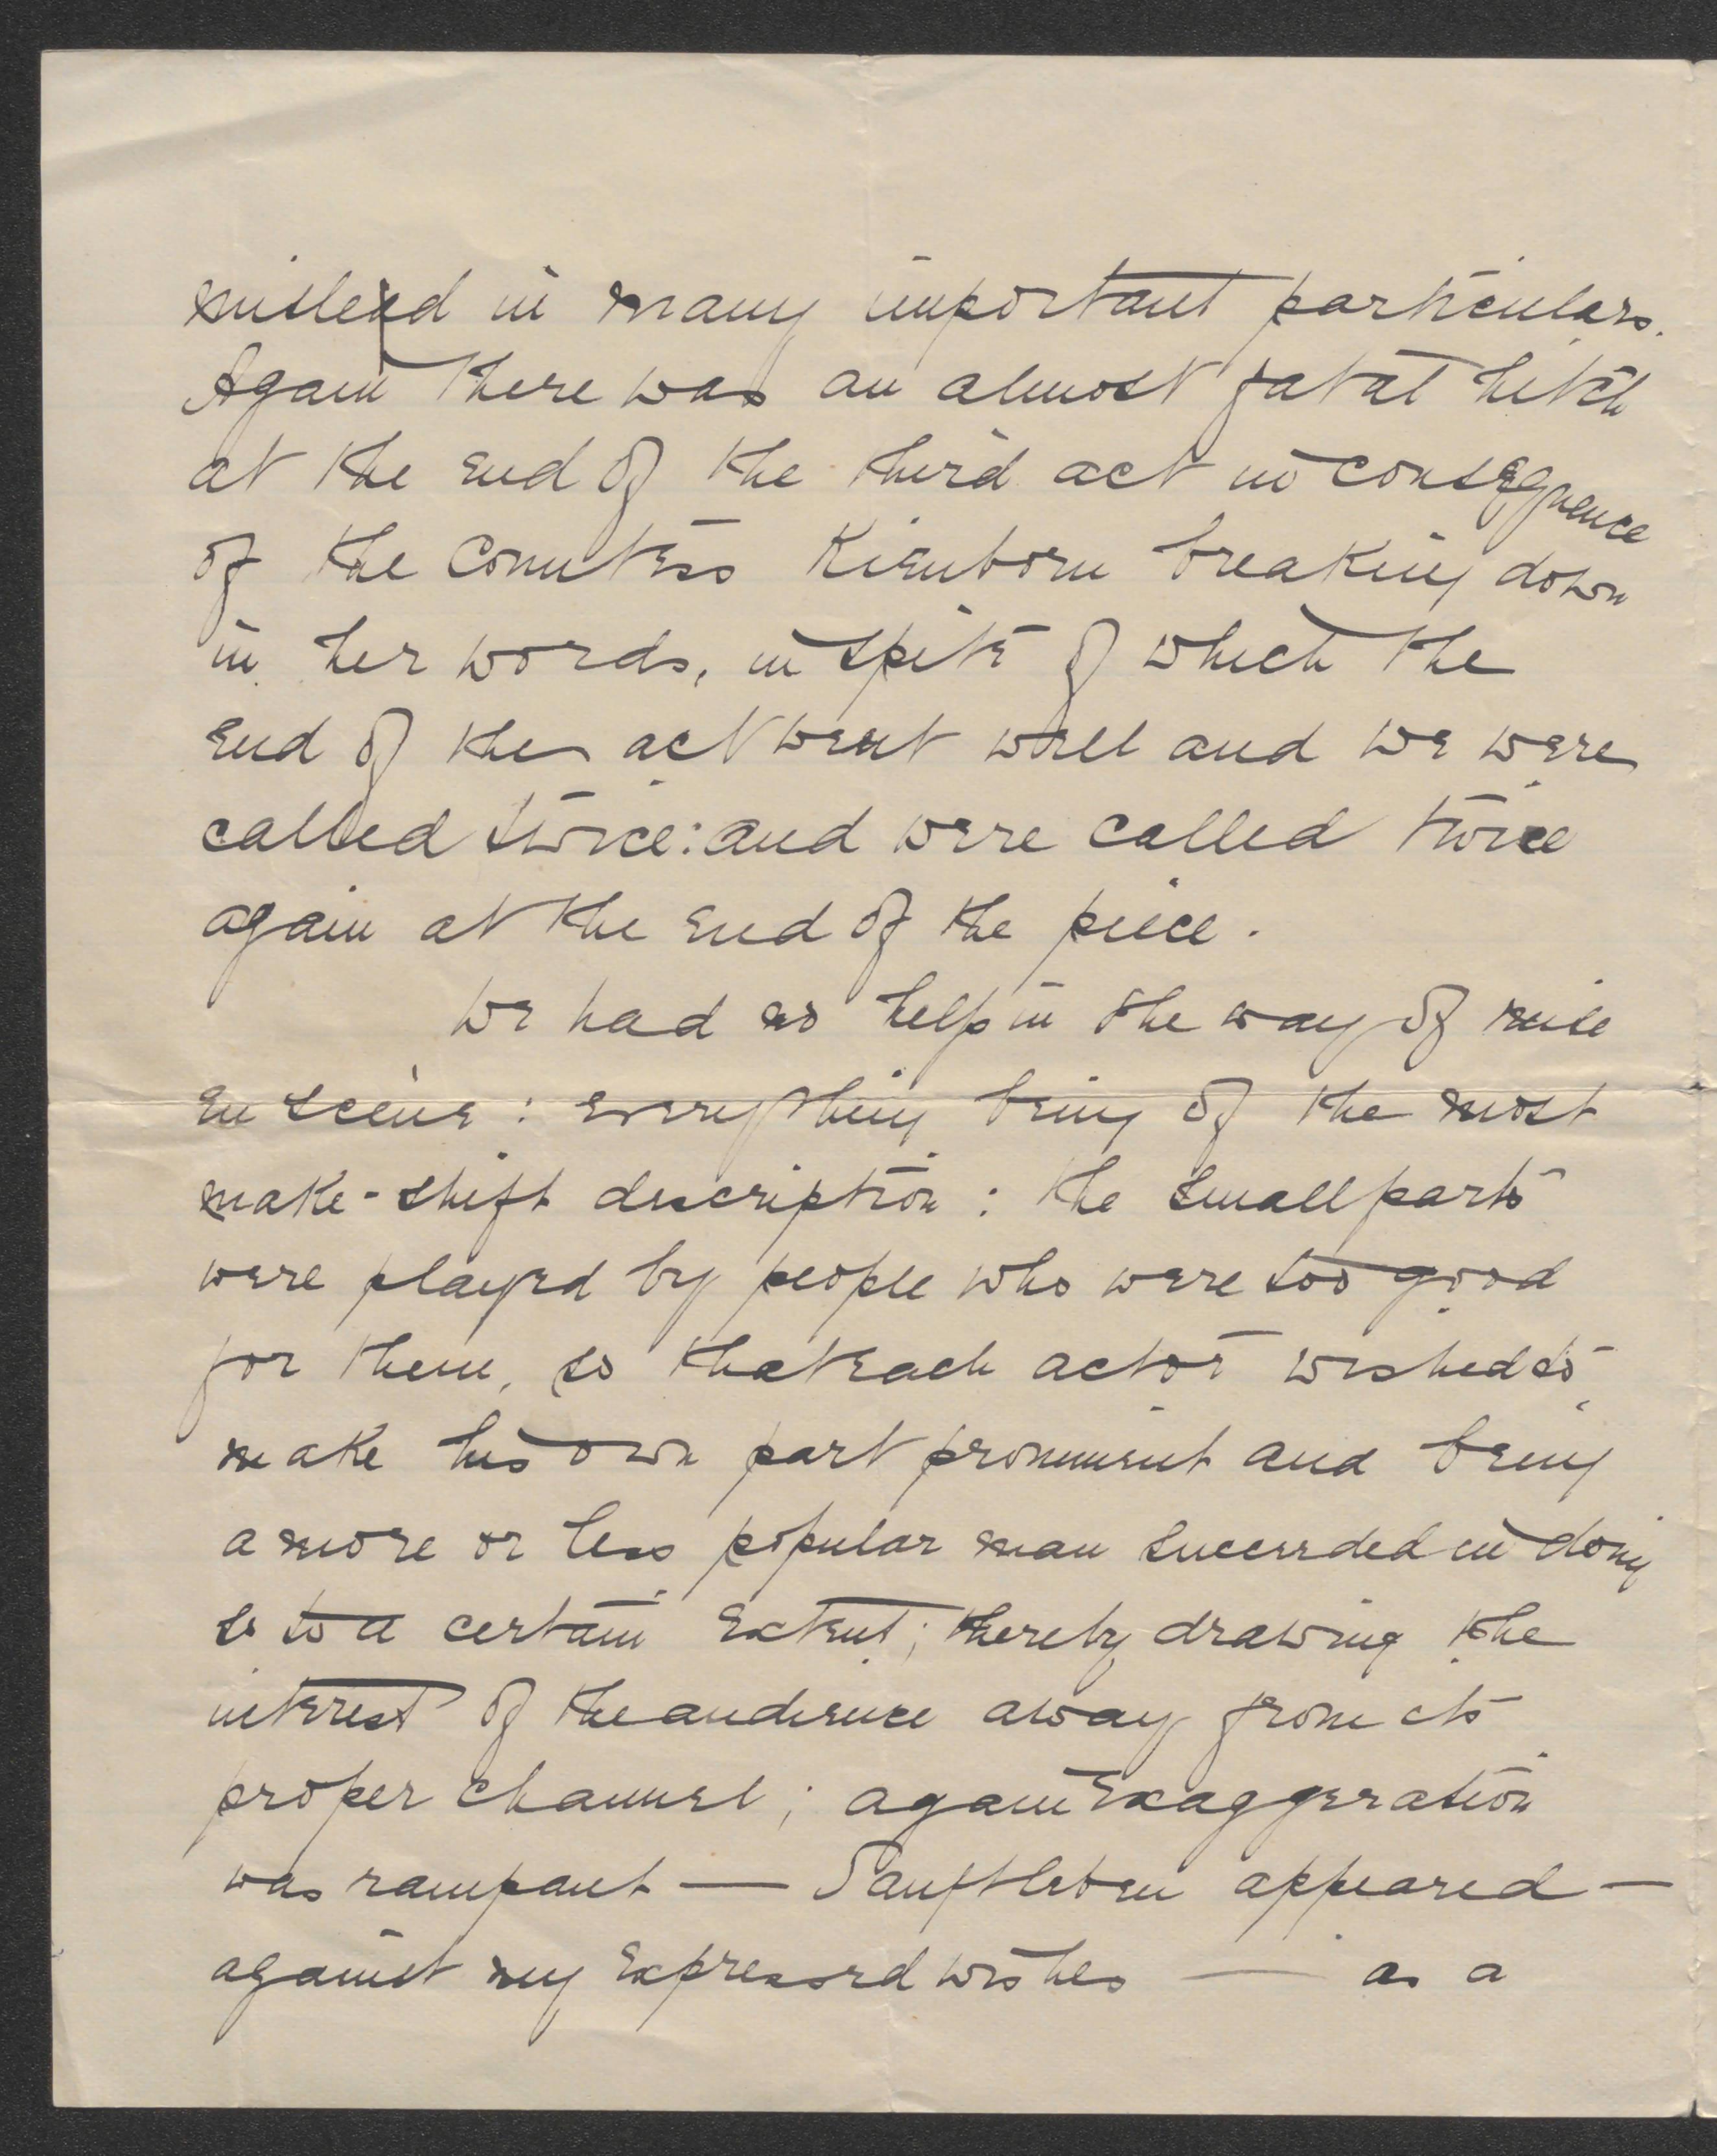 misled in many important particulars.
Again there was an almost fatal hitch
at the end of the third act in consequence
of the Countess Kienborn breaking down
in her words, in spite of which the
end of the act went well and we were
called twice: and were called twice
again at the end of the piece.
We had no help in the way of mise
en scène: everything being of the most
make-shift description: the small parts
were played by people who were too good
for them, so that each actor wished to
make his own part prominent and being
a more or less popular man succeeded in doing
so to a certain extent; thereby drawing the
interest of the audience away from its
proper channel; again exaggeration
was rampant — Sanftleben appeared —
against my expressed wishes — as a